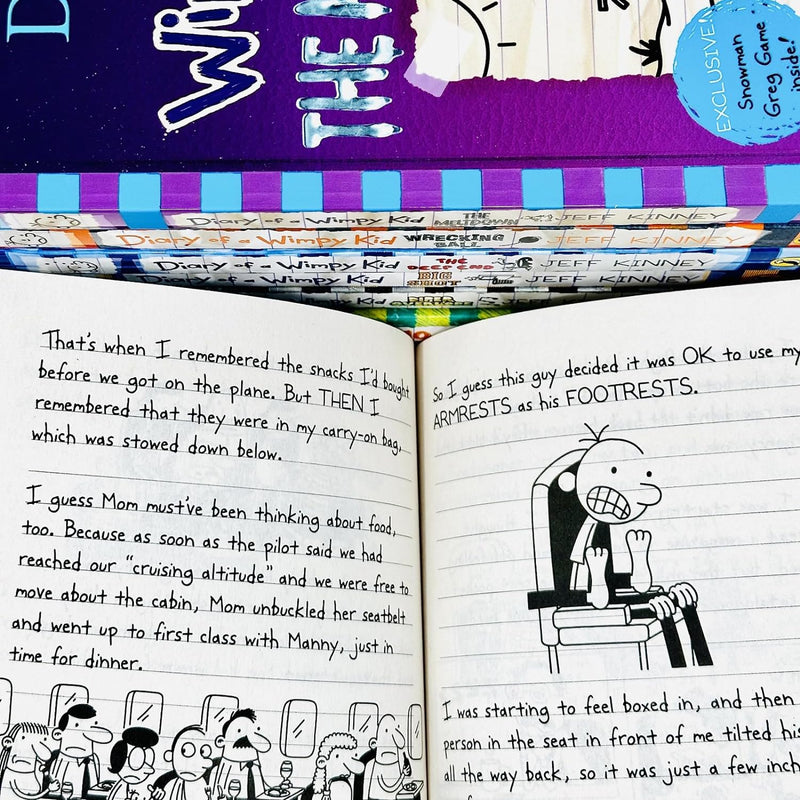 Wimpy
THE
EXCLUSIVE!
Snowman
Greg Game
inside!
Diary of a Wimpy Kid THE MELTDOWN JEFF KINNEY
Diary of a Wimpy Kid WRECKING BALL JEFF KINNEY
Diary of a Wimpy Kid THE DEEP END JEFF KINNEY
Diary of a Wimpy Kid BIG SHOT JEFF KINNEY
Kid
That's when I remembered the snacks I'd bought
before we got on the plane. But THEN I
remembered that they were in my carry-on bag,
which was stowed down below.
I guess Mom must've been thinking about food,
too. Because as soon as the pilot said we had
reached our "cruising altitude" and we were free to
move about the cabin, Mom unbuckled her seatbelt
and went up to first class with Manny, just in
time for dinner.
So I guess this guy decided it was OK to use my
ARMRESTS as his FOOTRESTS.
I was starting to feel boxed in, and then
person in the seat in front of me tilted his
all the way back, so it was just a few inch